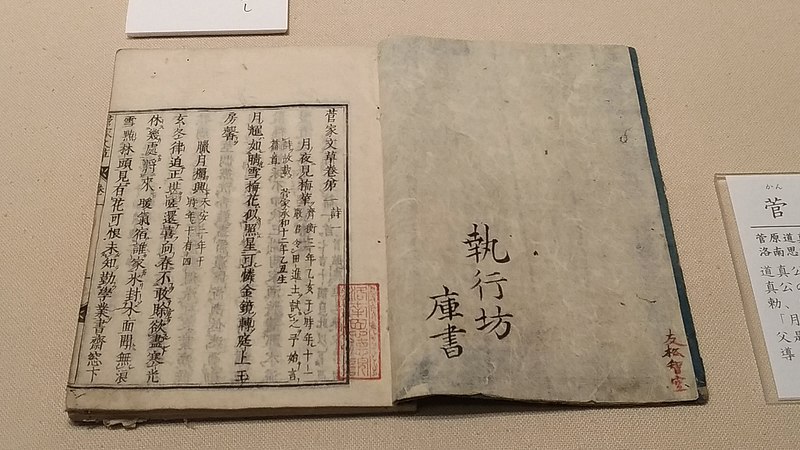 菅家文草卷第一 詩一
月夜見梅華 齊衡三年乙亥于時年十一
嚴君令田進士試之予始言
詩故載
篇首 菅家承和十二年乙丑生
月耀如晴雪梅花似照星可憐金鏡轉庭上玉
房馨
臘月獨興 天安二年于
時年十有四
玄冬律迫正堪嗟還喜向春不敢賖欲盡寒光
休幾處將來暖氣宿誰家氷封水面聞無浪
雪點林頭見有花可恨未知勤學業書齋窓下
執行坊
庫書
友松
し
かん
菅
菅原道
洛南思
道真公
真公
勅、
「月
父
導